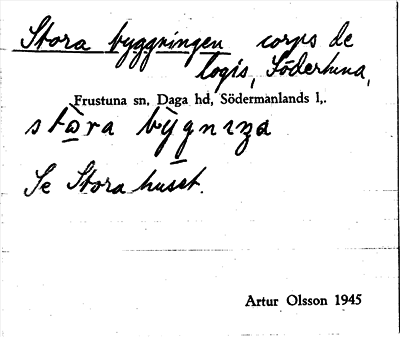 Stora byggningen corps de
logis, Södertuna,
Frustuna sn, Daga hd, Södermanlands l,.
stòra bỳgniza
Se Stora huset.
Artur Olsson 1945